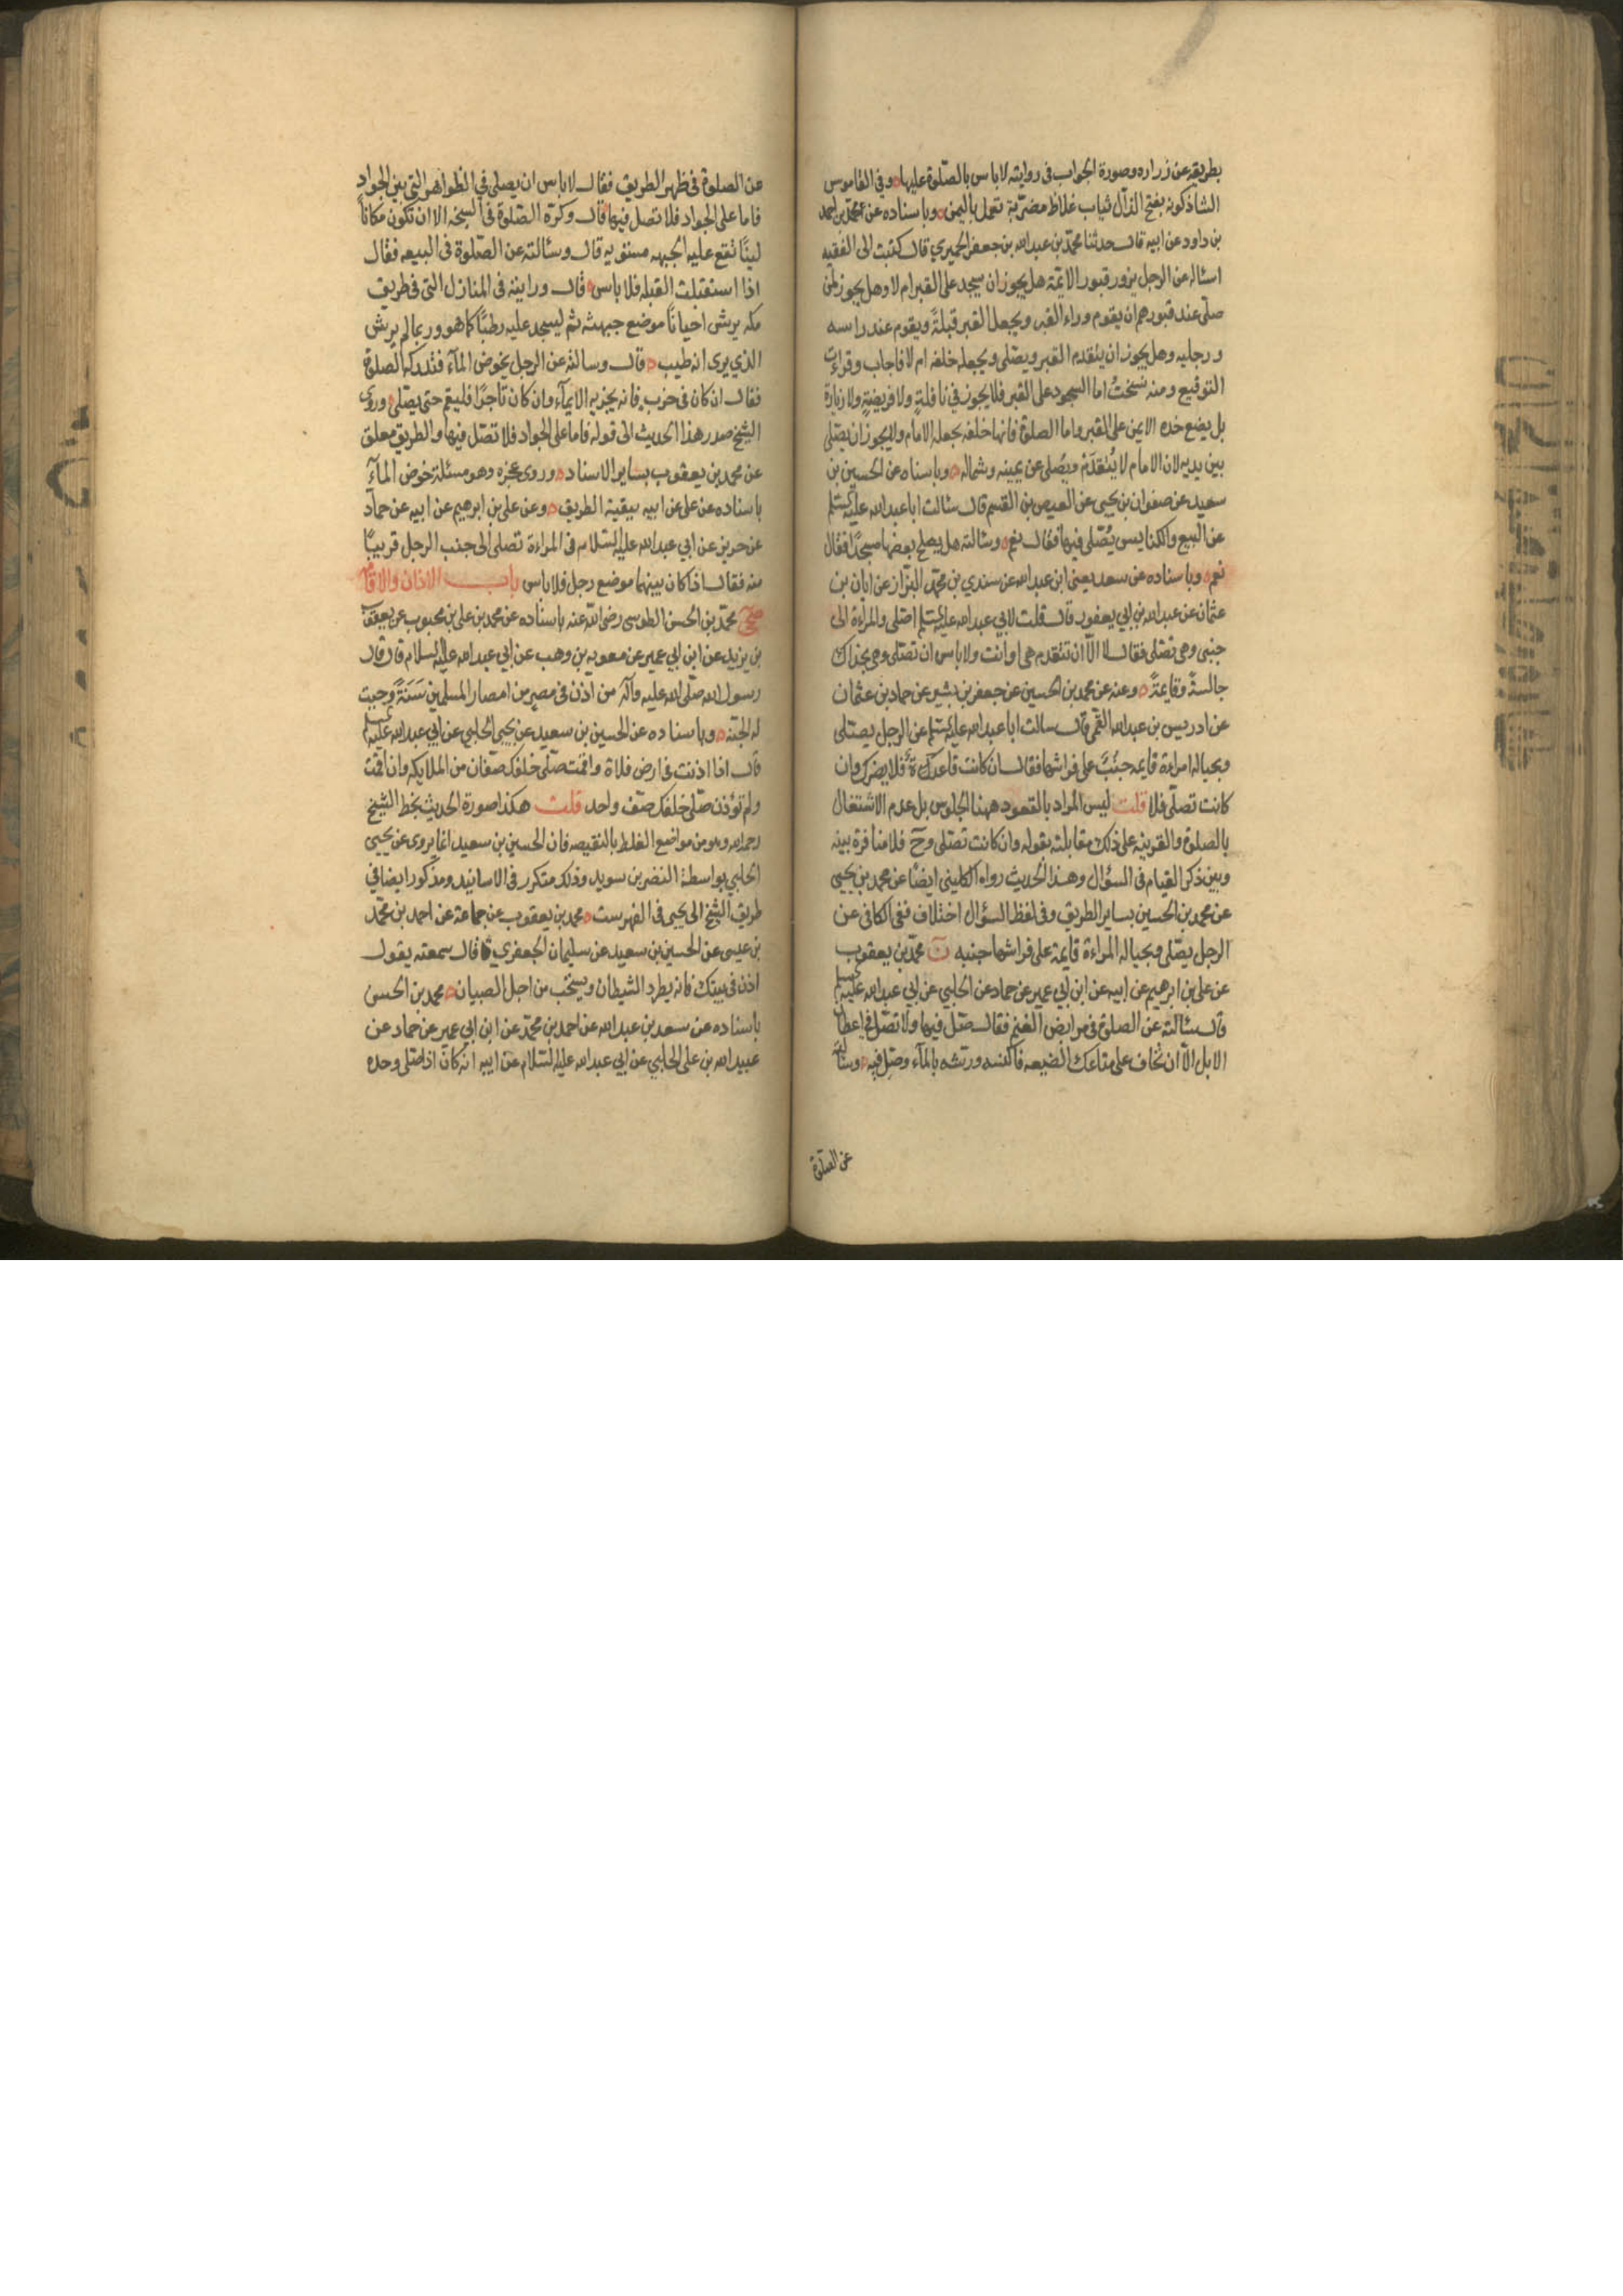 بطريقه عن زراره وصورة الجواب فى روايته لاباس بالصّلوة عليها وفى القاموس
الشاذكونه بفتح الذال ثياب غلاظ مضرّبة تعمل باليمن وباسناده عن محمّد بن احمد
بن داود عن ابيه قال حدثنا محمّد بن عبد الله بن جعفر الحميري قال كتبت الى الفقيه
اسئاله عن الرجل يزور قبور الائمّة هل يجوز ان يسجد على القبر ام لا وهل يجوز لمن
صلّى عند قبورهم ان يقوم وراء القبر ويجعل القبر قبلةً ويقوم عند راسه
ورجليه وهل يجوز ان يتقدم القبر ويصلى ويجعله خلفه ام لا فاجاب وقراءت
التوقيع ومنه نسختُ اما السجود على القبر فلا يجوز في نافلةٍ ولا فريضةٍ ولا زيارة
بل يضع خده الايمن على القبر واما الصلوة فانها خلفه يجعله الامام ولا يجوز ان يصلى
بين يديه لان الامام لا يُتقدَم ويصُلى عن يمينه وشماله وباسناده عن الحسين بن
سعيد عن صفوان بن يحيى عن العيص بن القسم قال سئالت ابا عبد الله عليه السلم
عن البيع والكنايس يُصّلى فيها فقال نعم وسئالته هل يصلح بعضها مسجدًا فقال
نعم وباسناده عن سعد يعنى ابن عبد الله عن سندي بن محمّد البزّاز عن ابان بن
عثمان عن عبد الله بن ابي يعفور قال قلت لابي عبد الله عليه السلم اصلى والمراءة الى
جنبى وهى تصّلى فقال لا الّا ان تتقدم هى او انت ولا باس ان تصّلى وهى بحذاك
جالسةً وقايمةً وعنه عن محمد بن الحسين عن جعفر بن بشير عن حماد بن عثمان
عن ادريس بن عبد الله القمى قال سالت ابا عبد الله عليه السلم عن الرجل يصّلى
وبحياله امراءة قايمه جنُبٌ على فراشها فقال ان كانت قاعدة فلا يضرك وان
كانت تصلّى فلا قلت ليس المراد بالقعود ههنا الجلوس بل عدم الاشتغال
بالصلوة والقرينه على ذلك مقابلته بقوله وان كانت تصّلى وحَ فلا منافرة بينه
وبين ذكر القيام فى السؤال وهذا الحديث رواه الكليني ايضًا عن محمد بن يحيى
عن محمد بن الحسين بساير الطريق وفى لفظ السؤال اختلاف ففى الكافى عن
الرجل يصّلى وبحياله المراءة قايمة على فراشها جنبه نَ محمّد بن يعقوب
عن على بن ابرهيم عن ابيه عن ابن ابي عمير عن حماد عن الحلبي عن ابي عبد الله عليه السلم
قال سئالته عن الصلوة فى مرابض الغنم فقال صّل فيها ولا تصّل في اعطان
الابل الّا ان تخاف على متاعك الضيعه فاكنسه ورشه بالمآء وصّل فيه وسئالته
عن الصّلوة
عن الصلوة فى ظهر الطريق فقال لاباس ان يصلى في الظواهر التى بين الجواد
فاما على الجواد فلا تصل فيها قال وكره الصّلوة فى السبخه الا ان تكون مكاناً
لينًا تقع عليه الجبهه مستويه قال وسئالته عن الصّلوة فى البيعه فقال
اذا استقبلت القبله فلا باس قال ورايته فى المنازل التى فى طريق
مكه يرش احياناً موضع جبهته ثم ليسجد عليه رطبًا كما هو وربما لم يرش
الذي يرى انه طيب قال وسالته عن الرجل يخوض المآء فتدركه الصلوة
فقال ان كان فى حرب فانه يجزيه الايمآء وان كان تاجرًا فليقم حتى يصلى وروى
الشيخ صدر هذا الحديث الى قوله فاما على الجواد فلا تصّل فيها والطريق معلق
عن محمد بن يعقوب بساير الاسناد وروى عجزه وهو مسئلة خوض المآء
باسناده عن على عن ابيه ببقية الطريق وعن على بن ابرهيم عن ابيه عن حماد
عن حريز عن ابي عبد الله عليه السلام فى المراءة تصلى الى جنب الرجل قريبًا
منه فقال اذا كان بينهما موضع رجل فلا باس باب الاذان والاقامة
صحى محمّد بن الحسن الطوسى رضى الله عنه باسناده عن محمد بن على بن محبوب عن يعقوب
بن يزيد عن ابن ابي عمير عن معويه بن وهب عن ابي عبد الله عليه السلام قال قال
رسول الله صلّى الله عليه وآله من اذن فى مصر من امصار المسلمين سَنَةً وجبت
له الجنّة وباسناده عن الحسين بن سعيد عن يحيى الحلبي عن ابي عبد الله عليه السلم
قال اذا اذنت فى ارض فلاة واقمت صلّى خلفك صفّان من الملايكه وان اقمت
ولم تؤذن صلّى خلفك صف واحد قلت هكذا صورة الحديث بخط الشيخ
رحمه الله وهو من مواضع الغلط بالنقيصه فان الحسين بن سعيد انما يروى عن يحيى
الحلبي بواسطة النضر بن سويد وذلك متكرر فى الاسانيد ومذكور ايضا في
طريق الشيخ الى يحيى فى الفهرست محمد بن يعقوب عن جماعة عن احمد بن محمّد
بن عيسى عن الحسين بن سعيد عن سليمان الجعفري قال سمعته يقول
اذن فى بيتك فانه يطرد الشيطان ويستحب من اجل الصبيان محمد بن الحسن
باسناده عن سعد بن عبد الله عن احمد بن محمّد عن ابن ابي عمير عن حماد عن
عبيد الله بن على الحلبي عن ابي عبد الله عليه السلام عن ابيه انه كان اذا صّلى وحده